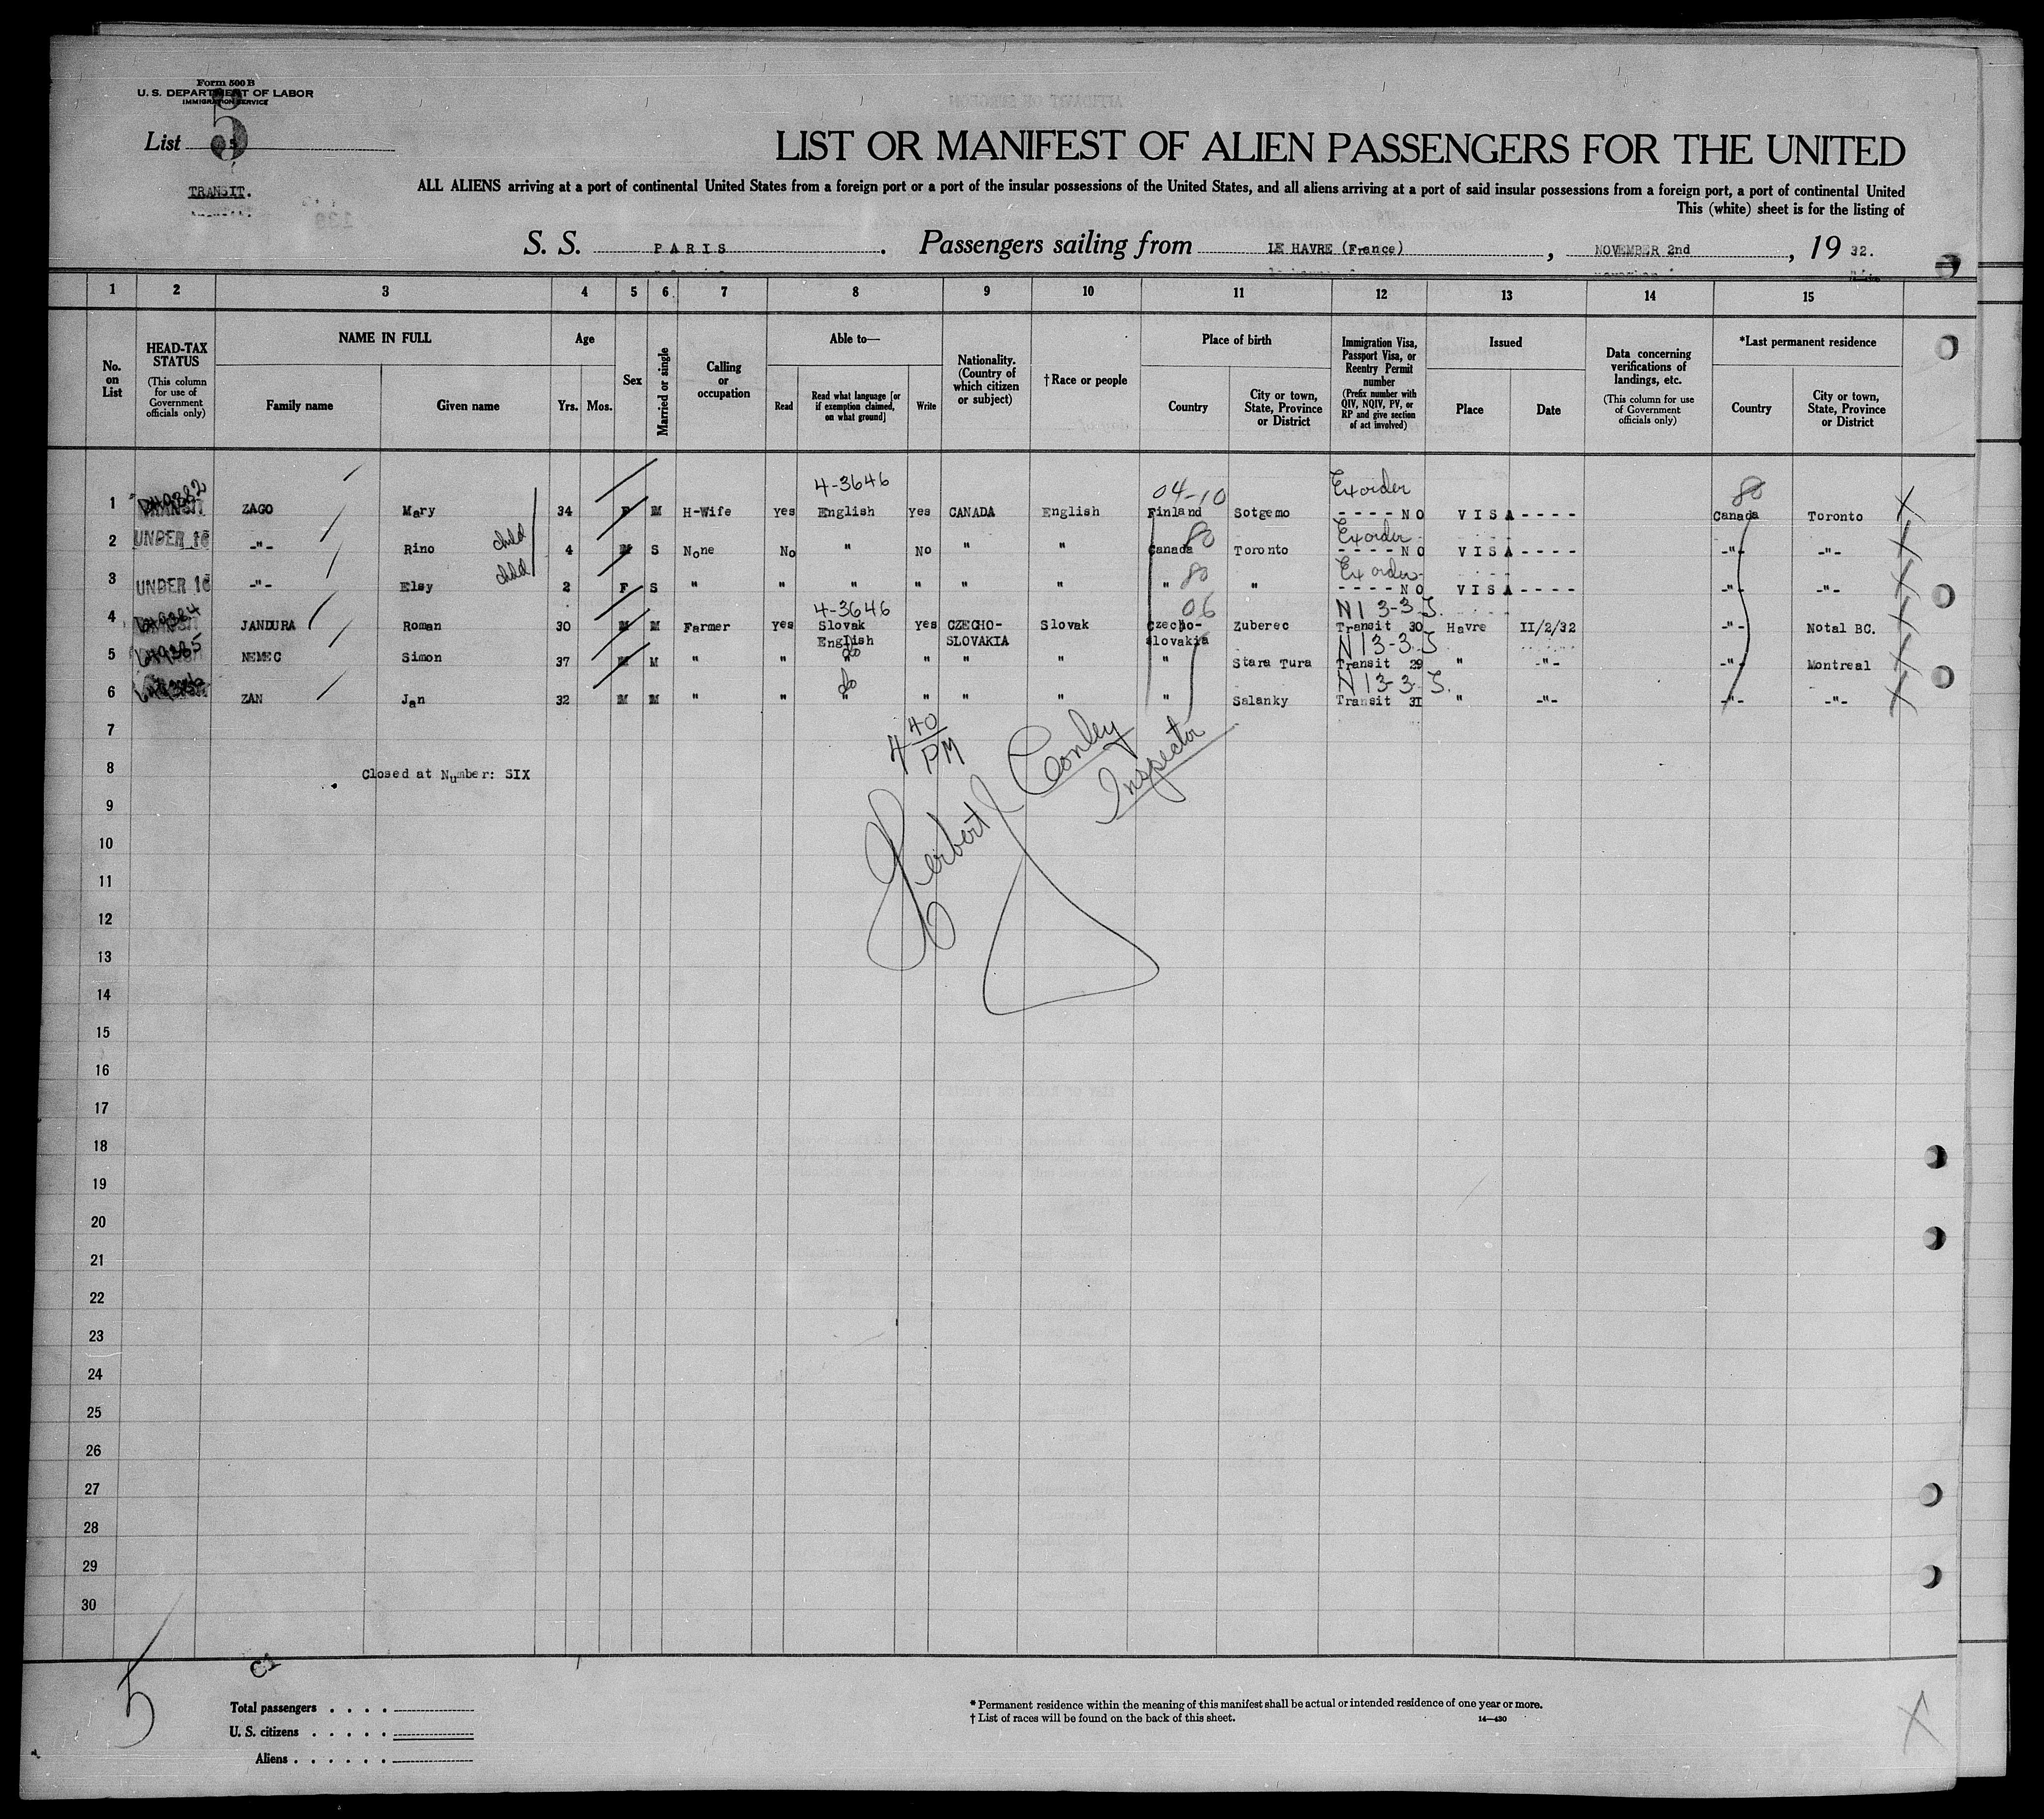 Form 500 B
U. S. DEPARTMENT OF LABOR
IMMIGRATION SERVICE
List 5
TRANSIT.
LIST OR MANIFEST OF ALIEN PASSENGERS FOR THE UNITED
ALL ALIENS arriving at a port of continental United States from a foreign port or a port of the insular possessions of the United States, and all aliens arriving at a port of said insular possessions from a foreign port, a port of continental United
This (white) sheet is for the listing of
S. S. PARIS. Passengers sailing from LE HAVRE (France), NOVEMBER 2nd, 19 32.
1 2 3 4 5 6 7 8 9 10 11 12 13 14 15
No. on List
HEAD-TAX STATUS
(This column for use of Government officials only)
NAME IN FULL
Family name
Given name
Age
Yrs. Mos.
Sex
Married or single
Calling or occupation
Able to—
Read
Read what language [or if exemption claimed, on what ground]
Write
Nationality. (Country of which citizen or subject)
† Race or people
Place of birth
Country
City or town, State, Province or District
Immigration Visa, Passport Visa, or Reentry Permit number
(Prefix number with QIV, NQIV, PV, or RP and give section of act involved)
Issued
Place
Date
Data concerning verifications of landings, etc.
(This column for use of Government officials only)
*Last permanent residence
Country
City or town, State, Province or District
4-3646 04-10 Ex order 80
1 ZAGO Mary 34 F M H-Wife yes English yes CANADA English Finland Sotgemo - - - - NO VISA - - - - Canada Toronto X
child 80 Ex order
2 UNDER 16 -"- Rino 4 M S None No " No " " Canada Toronto - - - - NO VISA - - - - -"- -"- X
child 80 Ex order
3 UNDER 16 -"- Elsy 2 F S " " " " " " " " - - - - NO VISA - - - - -"- -"- X
4-3646 06 N13-3.J.
4 JANDURA Roman 30 M M Farmer yes Slovak English yes CZECHO-SLOVAKIA Slovak Czecho-slovakia Zuberec Transit 30 Havre II/2/32 -"- Notal BC. X
do N13-3.J
5 NEMEC Simon 37 M M " " " " " " " Stara Tura Transit 29 " -"- -"- Montreal X
do N13-3.J.
6 ZAN Jan 32 M M " " " " " " " Salanky Transit 31 " -"- -"- -"- X
7
4 40 PM
8 Closed at Number: SIX
Herbert J Conley
Inspector
9
10
11
12
13
14
15
16
17
18
19
20
21
22
23
24
25
26
27
28
29
30
5
Total passengers . . . .
U. S. citizens . . . . .
Aliens . . . . . .
* Permanent residence within the meaning of this manifest shall be actual or intended residence of one year or more.
† List of races will be found on the back of this sheet.
14—430
X